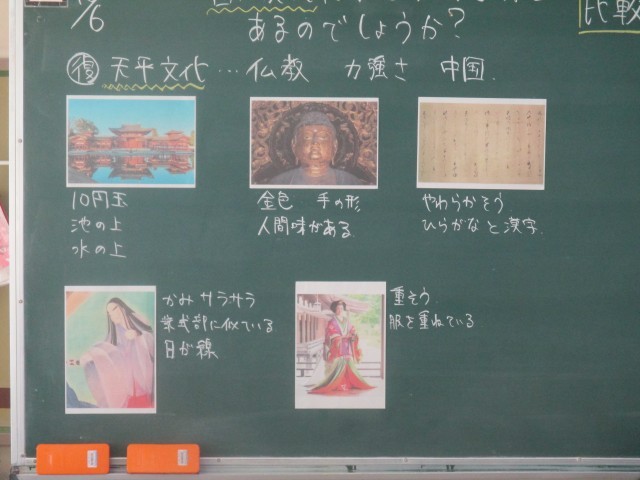 /6
あるのでしょうか?
比較
復 天平文化…仏教 力強さ 中国
10円玉
池の上
水の上
金色 手の形
人間味がある
やわらかそう
ひらがなと漢字
かみサラサラ
紫式部に似ている
目が線
重そう
服を重ねている